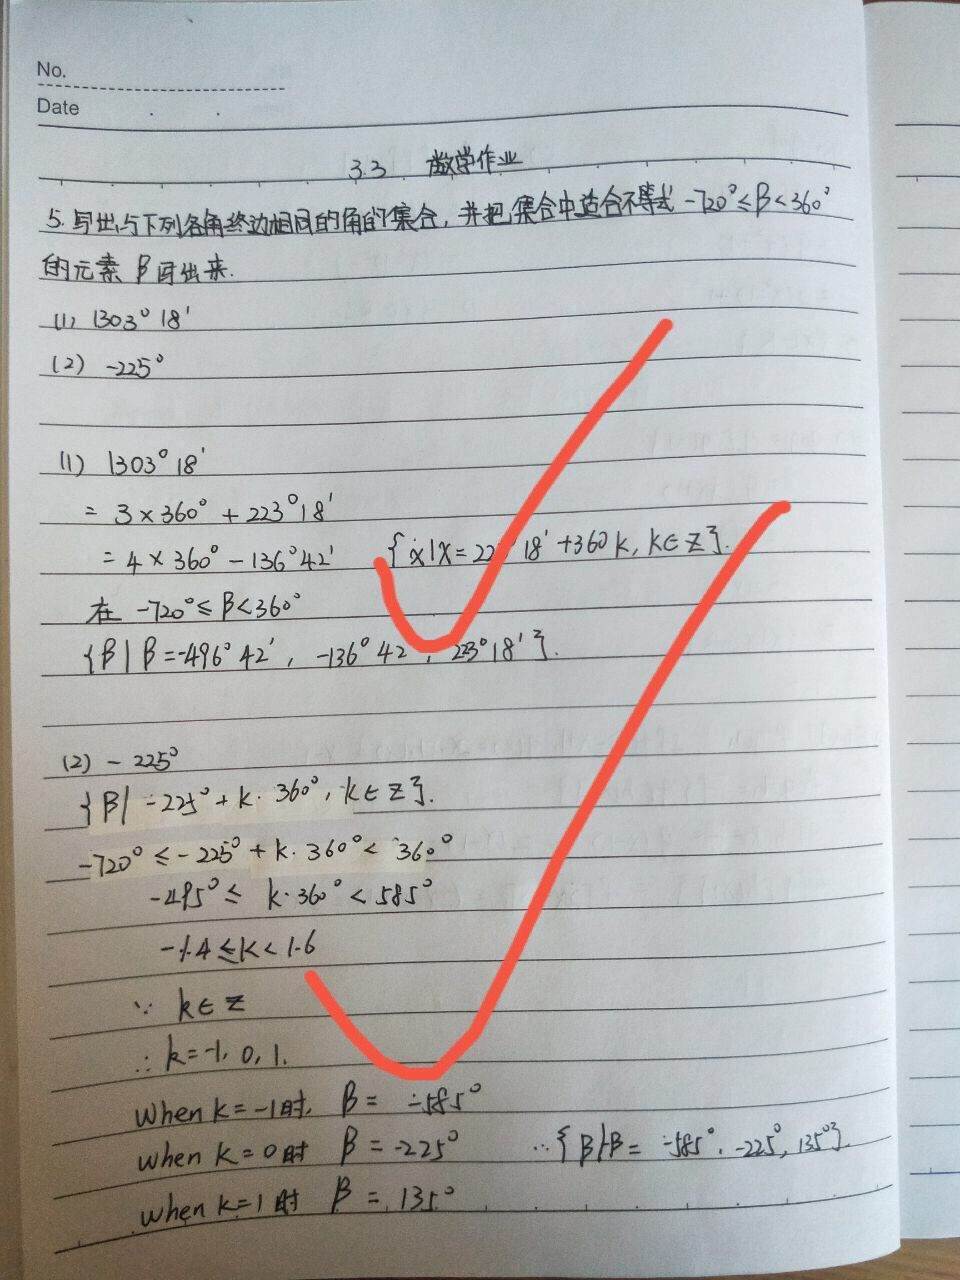 No.
Date
3.3 数学作业
5. 写出与下列各角终边相同的角的集合, 并把集合中适合不等式 -720°≤β<360°
的元素 β 写出来.
(1) 1303°18'
(2) -225°
(1) 1303°18'
= 3×360° + 223°18'
= 4×360° - 136°42' {x|x=22 18'+360k, k∈Z}.
在 -720°≤β<360°
{β|β=-496°42', -136°42, 223°18'}.
(2) -225°
{β| -225°+k·360°, k∈Z}.
-720°≤-225°+k·360°<360°
-495°≤ k·360°<585°
-1.4≤k<1.6
∵ k∈Z
∴ k=-1, 0, 1.
When k=-1时, β= -585°
when k=0时 β=-225° ∴{β|β= -585°, -225°, 135°}.
when k=1时 β=135°